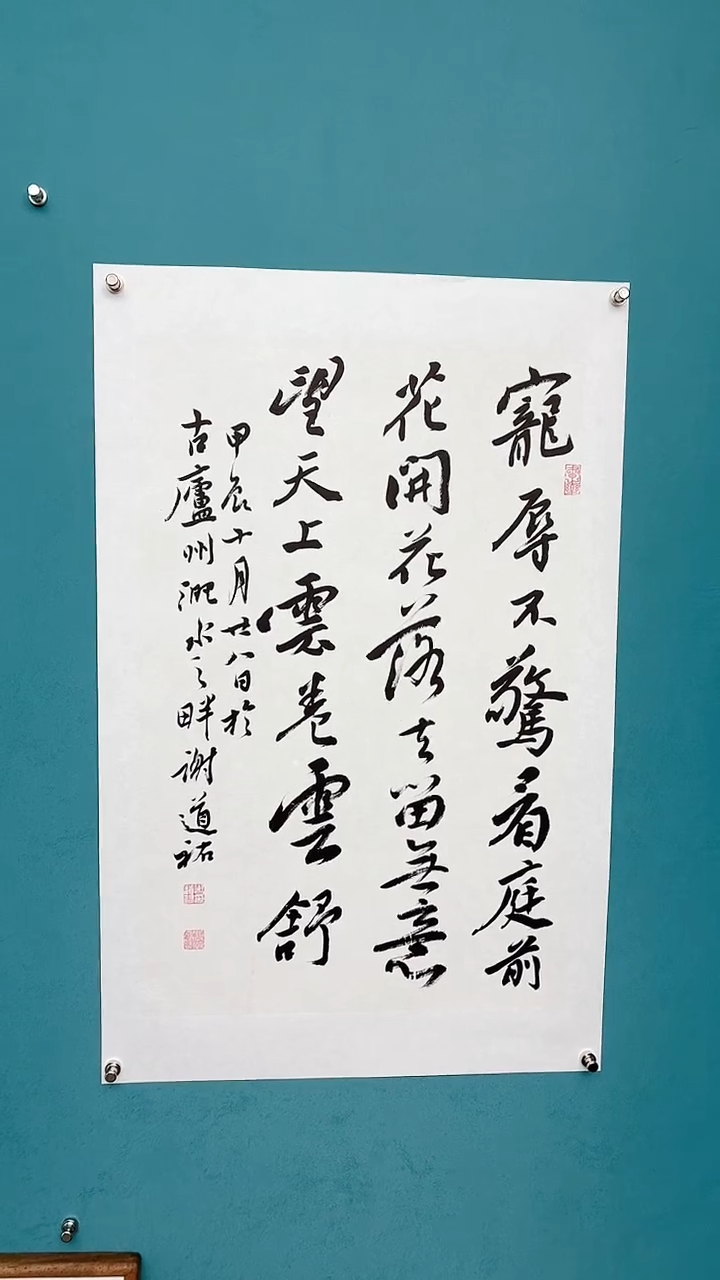 寵辱不驚看庭前
花開花落去留無意
望天上雲卷雲舒
甲辰十月廿八日於
古廬州淝水之畔謝道祐